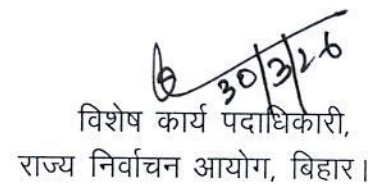 30/3/26
विशेष कार्य पदाधिकारी,
राज्य निर्वाचन आयोग, बिहार।